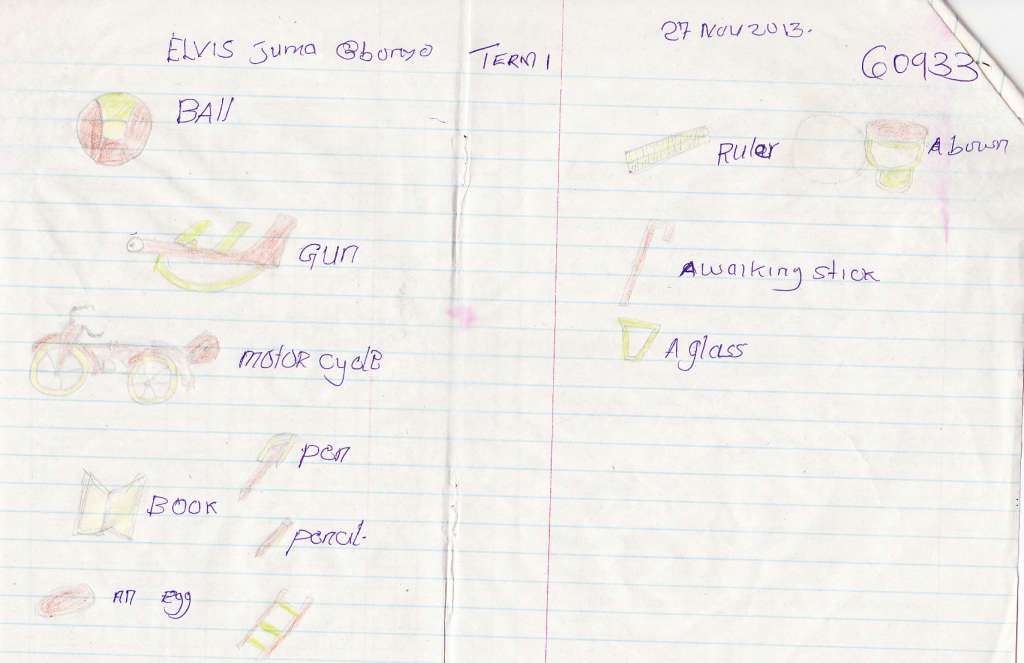 ELVIS Juma Obonyo TERM 1
27 Nov 2013.
60933
BAll
GUN
MOTOR CYCLE
pen
BOOK
pencil.
An Egg
Ruler
A bown
A walking stick
A glass